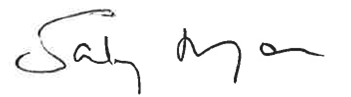 Sally Ryan